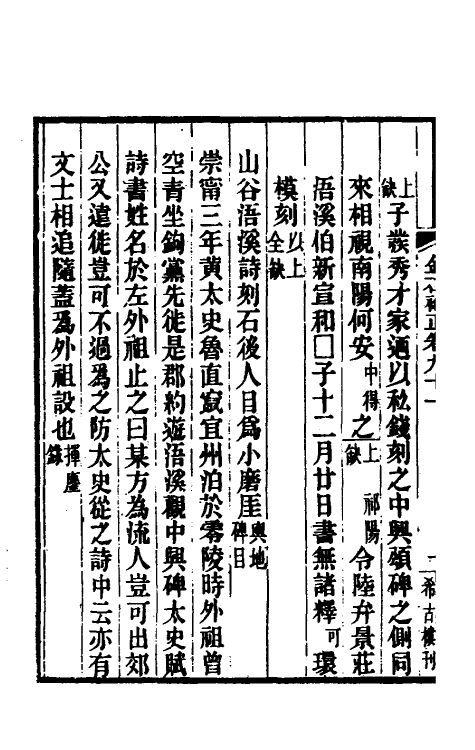 金石補正卷九十一 一 希古樓刊
上缺子秀才家迺以私錢刻之中興頌碑之側同
來相視南陽何安中得之上缺祁陽令陸弁景莊
浯溪伯新宣和□子十二月廿日書無諸釋可環
模刻以上全缺
山谷浯溪詩刻石後人目爲小磨厓輿地碑目
崇甯三年黃太史魯直竄宜州泊於零陵時外祖曾
空青坐鉤黨先徙是郡約遊浯溪觀中興碑太史賦
詩書姓名於左外祖止之曰某方為流人豈可出郊
公又遠徙豈可不過爲之防太史從之詩中云亦有
文士相追隨蓋爲外祖設也揮麈錄